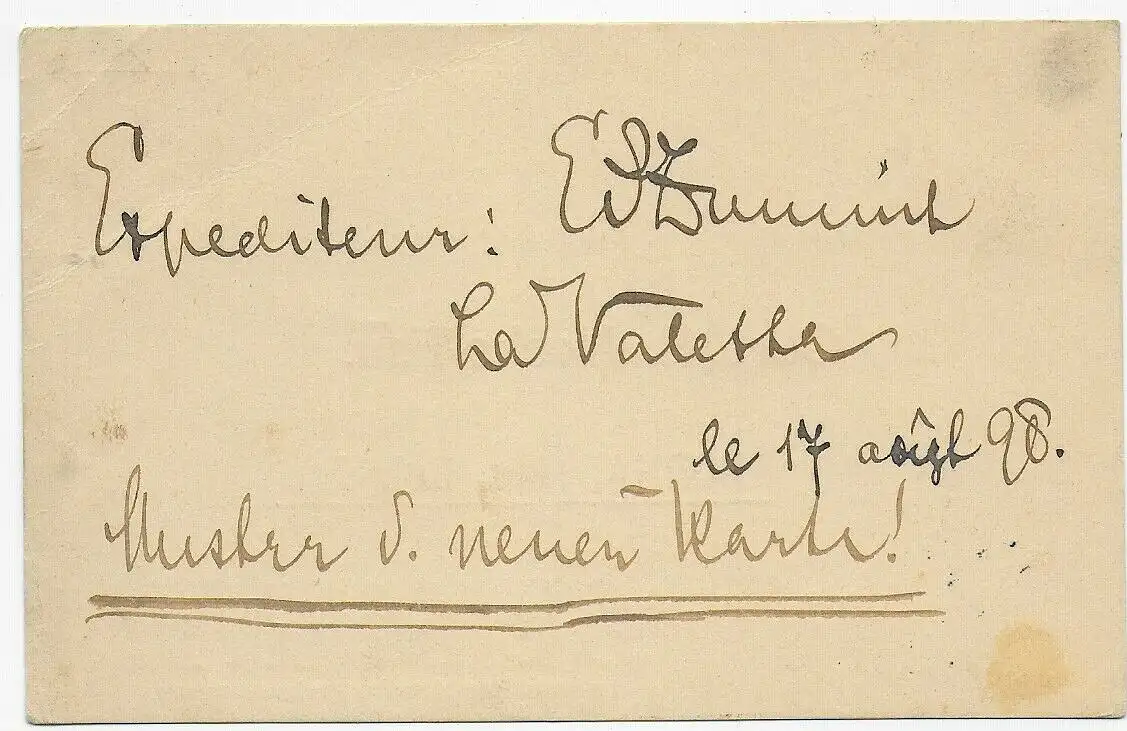 Expediteur: Ed
La Valetta
le 17 août 98.
Muster d. neuen Karte!